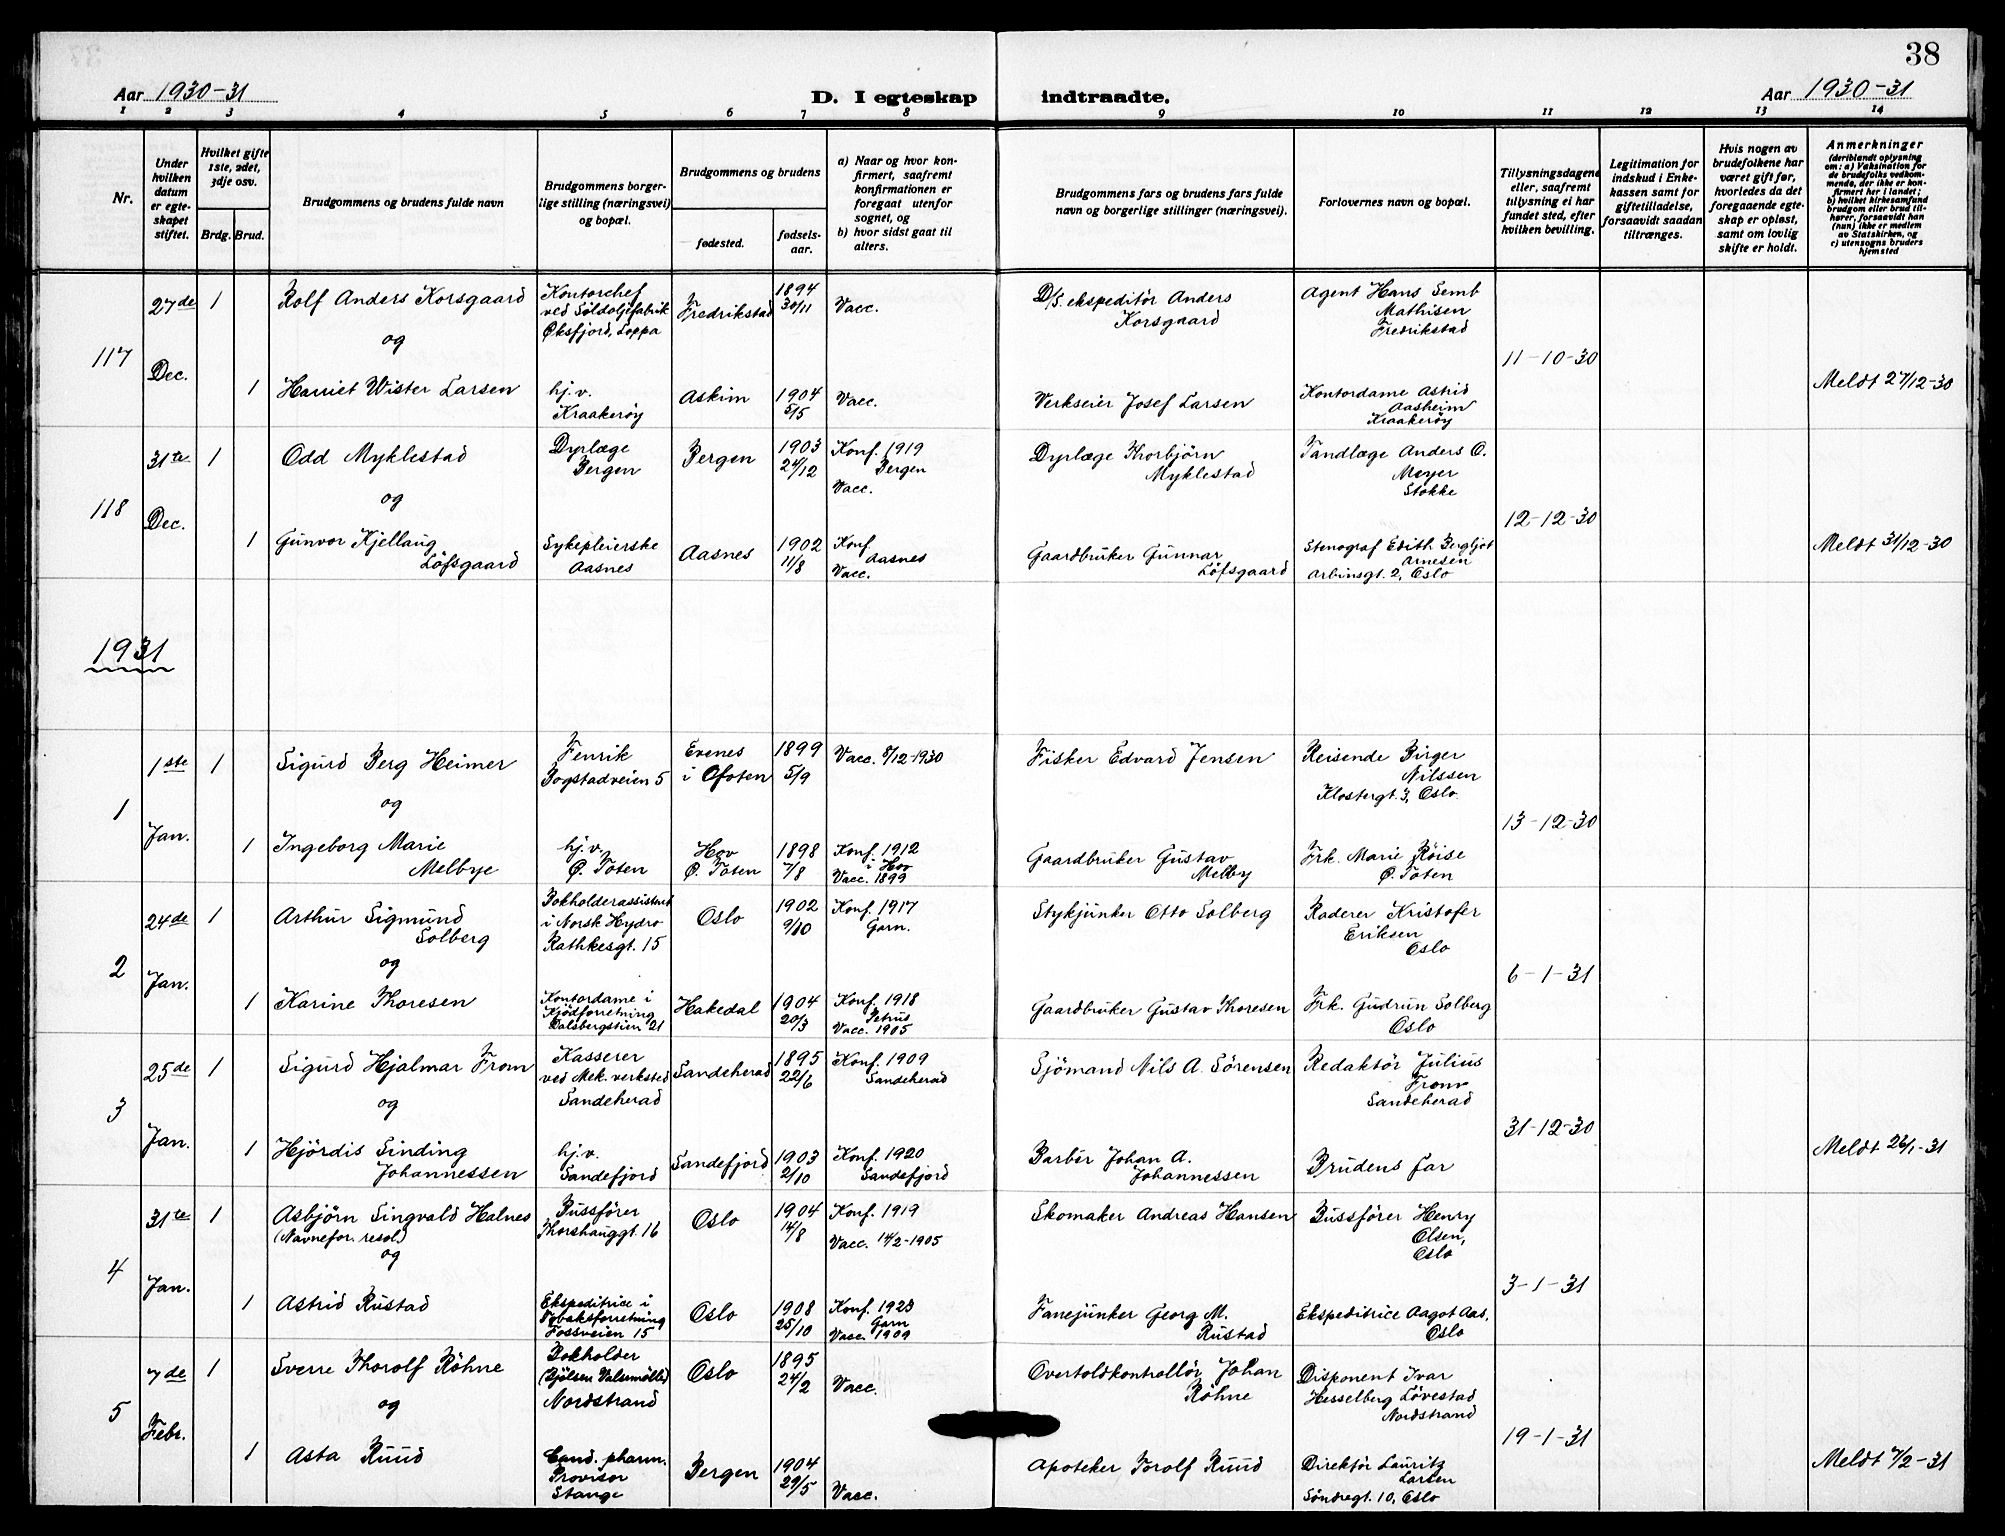 38
Aar 1930-31
D. I egteskap indtraadte.
Aar 1930-31
1 2 3 4 5 6 7 8 9 10 11 12 13 14
Nr.
Under hvilken datum er egteskapet stiftet.
Hvilket gifte 1ste, 2det, 3dje osv.
Brdg. Brud.
Brudgommens og brudens fulde navn
Brudgommens borgerlige stilling (næringsvei) og bopæl.
Brudgommens og brudens
fødested.
fødselsaar.
a) Naar og hvor konfirmert, saafremt konfirmationen er foregaat utenfor sognet, og
b) hvor sidst gaat til alters.
Brudgommens fars og brudens fars fulde navn og borgerlige stillinger (næringsvei).
Forlovernes navn og bopæl.
Tillysningsdagene eller, saafremt tillysning ei har fundet sted, efter hvilken bevilling.
Legitimation for indskud i Enkekassen samt for giftetilladelse, forsaavidt saadan tiltrænges.
Hvis nogen av brudefolkene har været gift før, hvorledes da det foregaaende egteskap er opløst, samt om lovlig skifte er holdt.
Anmerkninger
(deriblandt oplysning om: a) Vaksination for de brudefolks vedkommende, der ikke er konfirmert her i landet; b) hvilket kirkesamfund brudgom eller brud tilhører, forsaavidt han (hun) ikke er medlem av Statskirken, og c) utensogns bruders hjemsted
117
27de Dec.
1
Rolf Anders Korsgaard
Kontorchef
ved Sildoljefabrik
Øksfjord, Loppa
Fredrikstad
1894
30/11
Vacc.
D/S. ekspeditör Anders
Korsgaard
Agent Hans Semb
Mathisen
Fredrikstad
og
11-10-30
1
Harriet Wister Larsen
hj.v.
Kraakerøy
Askim
1904
5/5
Vacc.
Verkseier Josef Larsen
Kontordame Astrid
Aasheim
Kraakerøy
Meldt 27/12-30
118
31te Dec.
1
Odd Myklestad
Dyrlæge
Bergen
Bergen
1903
24/12
Konf. 1919
Bergen
Vacc.
Dyrlæge Thorbjörn
Myklestad
Tandlæge Anders O.
Meyer
Stokke
og
12-12-30
1
Gunvor Kjellaug
Löfsgaard
Sykepleierske
Aasnes
Aasnes
1902
11/8
Konf.
Aasnes
Vacc.
Gaardbruker Gunnar
Löfsgaard
Stenograf Edith Bergljot
Arnesen
Arbinsgt. 2, Oslo
Meldt 31/12-30
1931
1
1ste Jan.
1
Sigurd Berg Heimer
Fenrik
Bogstadveien 5
Evenes
i Ofoten
1899
5/9
Vacc. 8/12-1930
Fisker Edvard Jensen
Reisende Birger
Nilssen
Klostergt. 3, Oslo.
og
13-12-30
1
Ingeborg Marie
Melbye
hj.v.
Ø. Toten
Hov
Ø. Toten
1898
7/8
Konf. 1912
i Hov
Vacc. 1899
Gaardbruker Gustav
Melby
Frk. Marie Röise
Ø. Toten
2
24de Jan.
1
Arthur Sigmund
Solberg
Bokholderassistent
i Norsk Hydro
Rathkesgt. 15
Oslo
1902
9/10
Konf. 1917
Garn.
Stykjunker Otto Solberg
Raderer Kristofer
Eriksen
Oslo
og
6-1-31
1
Karine Thoresen
Kontordame i
Kjödforretning
Dalsbergstien 21
Hakedal
1904
20/3
Konf. 1918
Petrus
Vacc. 1905
Gaardbruker Gustav Thoresen
Frk. Gudrun Solberg
Oslo
3
25de Jan.
1
Sigurd Hjalmar From
Kasserer
ved Mek. verksted
Sandeherad
Sandeherad
1895
22/6
Konf. 1909
Sandeherad
Sjömand Nils A. Sörensen
Redaktör Julius
From
Sandeherad
og
31-12-30
1
Hjördis Sinding
Johannessen
hj.v.
Sandefjord
Sandefjord
1903
2/10
Konf. 1920
Sandefjord
Barbér Johan A.
Johannessen
Brudens far
Meldt 26/1-31
4
31te Jan.
1
Asbjörn Singvald Halnes
(Navnefor. resol.)
Bussfører
Thorshauggt. 16
Oslo
1904
14/8
Konf. 1919
Vacc. 14/2-1905
Skomaker Andreas Hansen
Bussfører Henry
Olsen,
Oslo
og
3-1-31
1
Astrid Rustad
Ekspeditrice i
Tobaksforretning
Fossveien 15
Oslo
1908
25/10
Konf. 1923
Garn
Vacc. 1909
Fanejunker Georg M.
Rustad
Ekspeditrice Aagot Aas,
Oslo
5
7de Febr.
1
Sverre Thorolf Röhne
Bokholder
(Bjölsen Valsemölle)
Nordstrand
Oslo
1895
24/2
Vacc.
Overtoldkontrollör Johan
Röhne
Disponent Ivar
Hesselberg Lövestad
Nordstrand
og
19-1-31
1
Asta Ruud
Cand. pharm.
Provisor
Stange
Bergen
1904
29/5
Vacc.
Apoteker Torolf Ruud
Direktör Lauritz
Larsen
Söndregt. 10, Oslo
Meldt 7/2-31